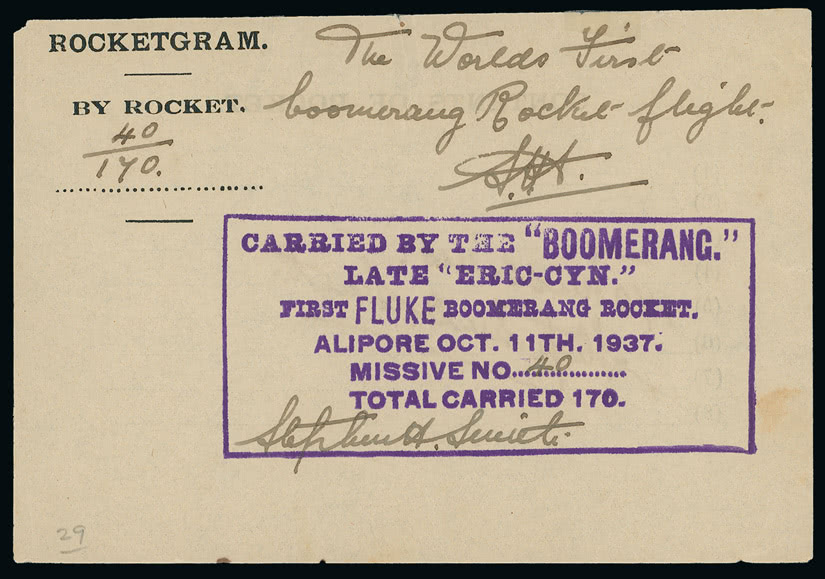 ROCKETGRAM.
The Worlds First
BY ROCKET.
boomerang Rocket flight.
40
170.
S.H.S.
CARRIED BY THE "BOOMERANG."
LATE "ERIC-CYN."
FIRST FLUKE BOOMERANG ROCKET.
ALIPORE OCT. 11TH. 1937.
MISSIVE NO....40............
TOTAL CARRIED 170.
Stephen H. Smith.
29